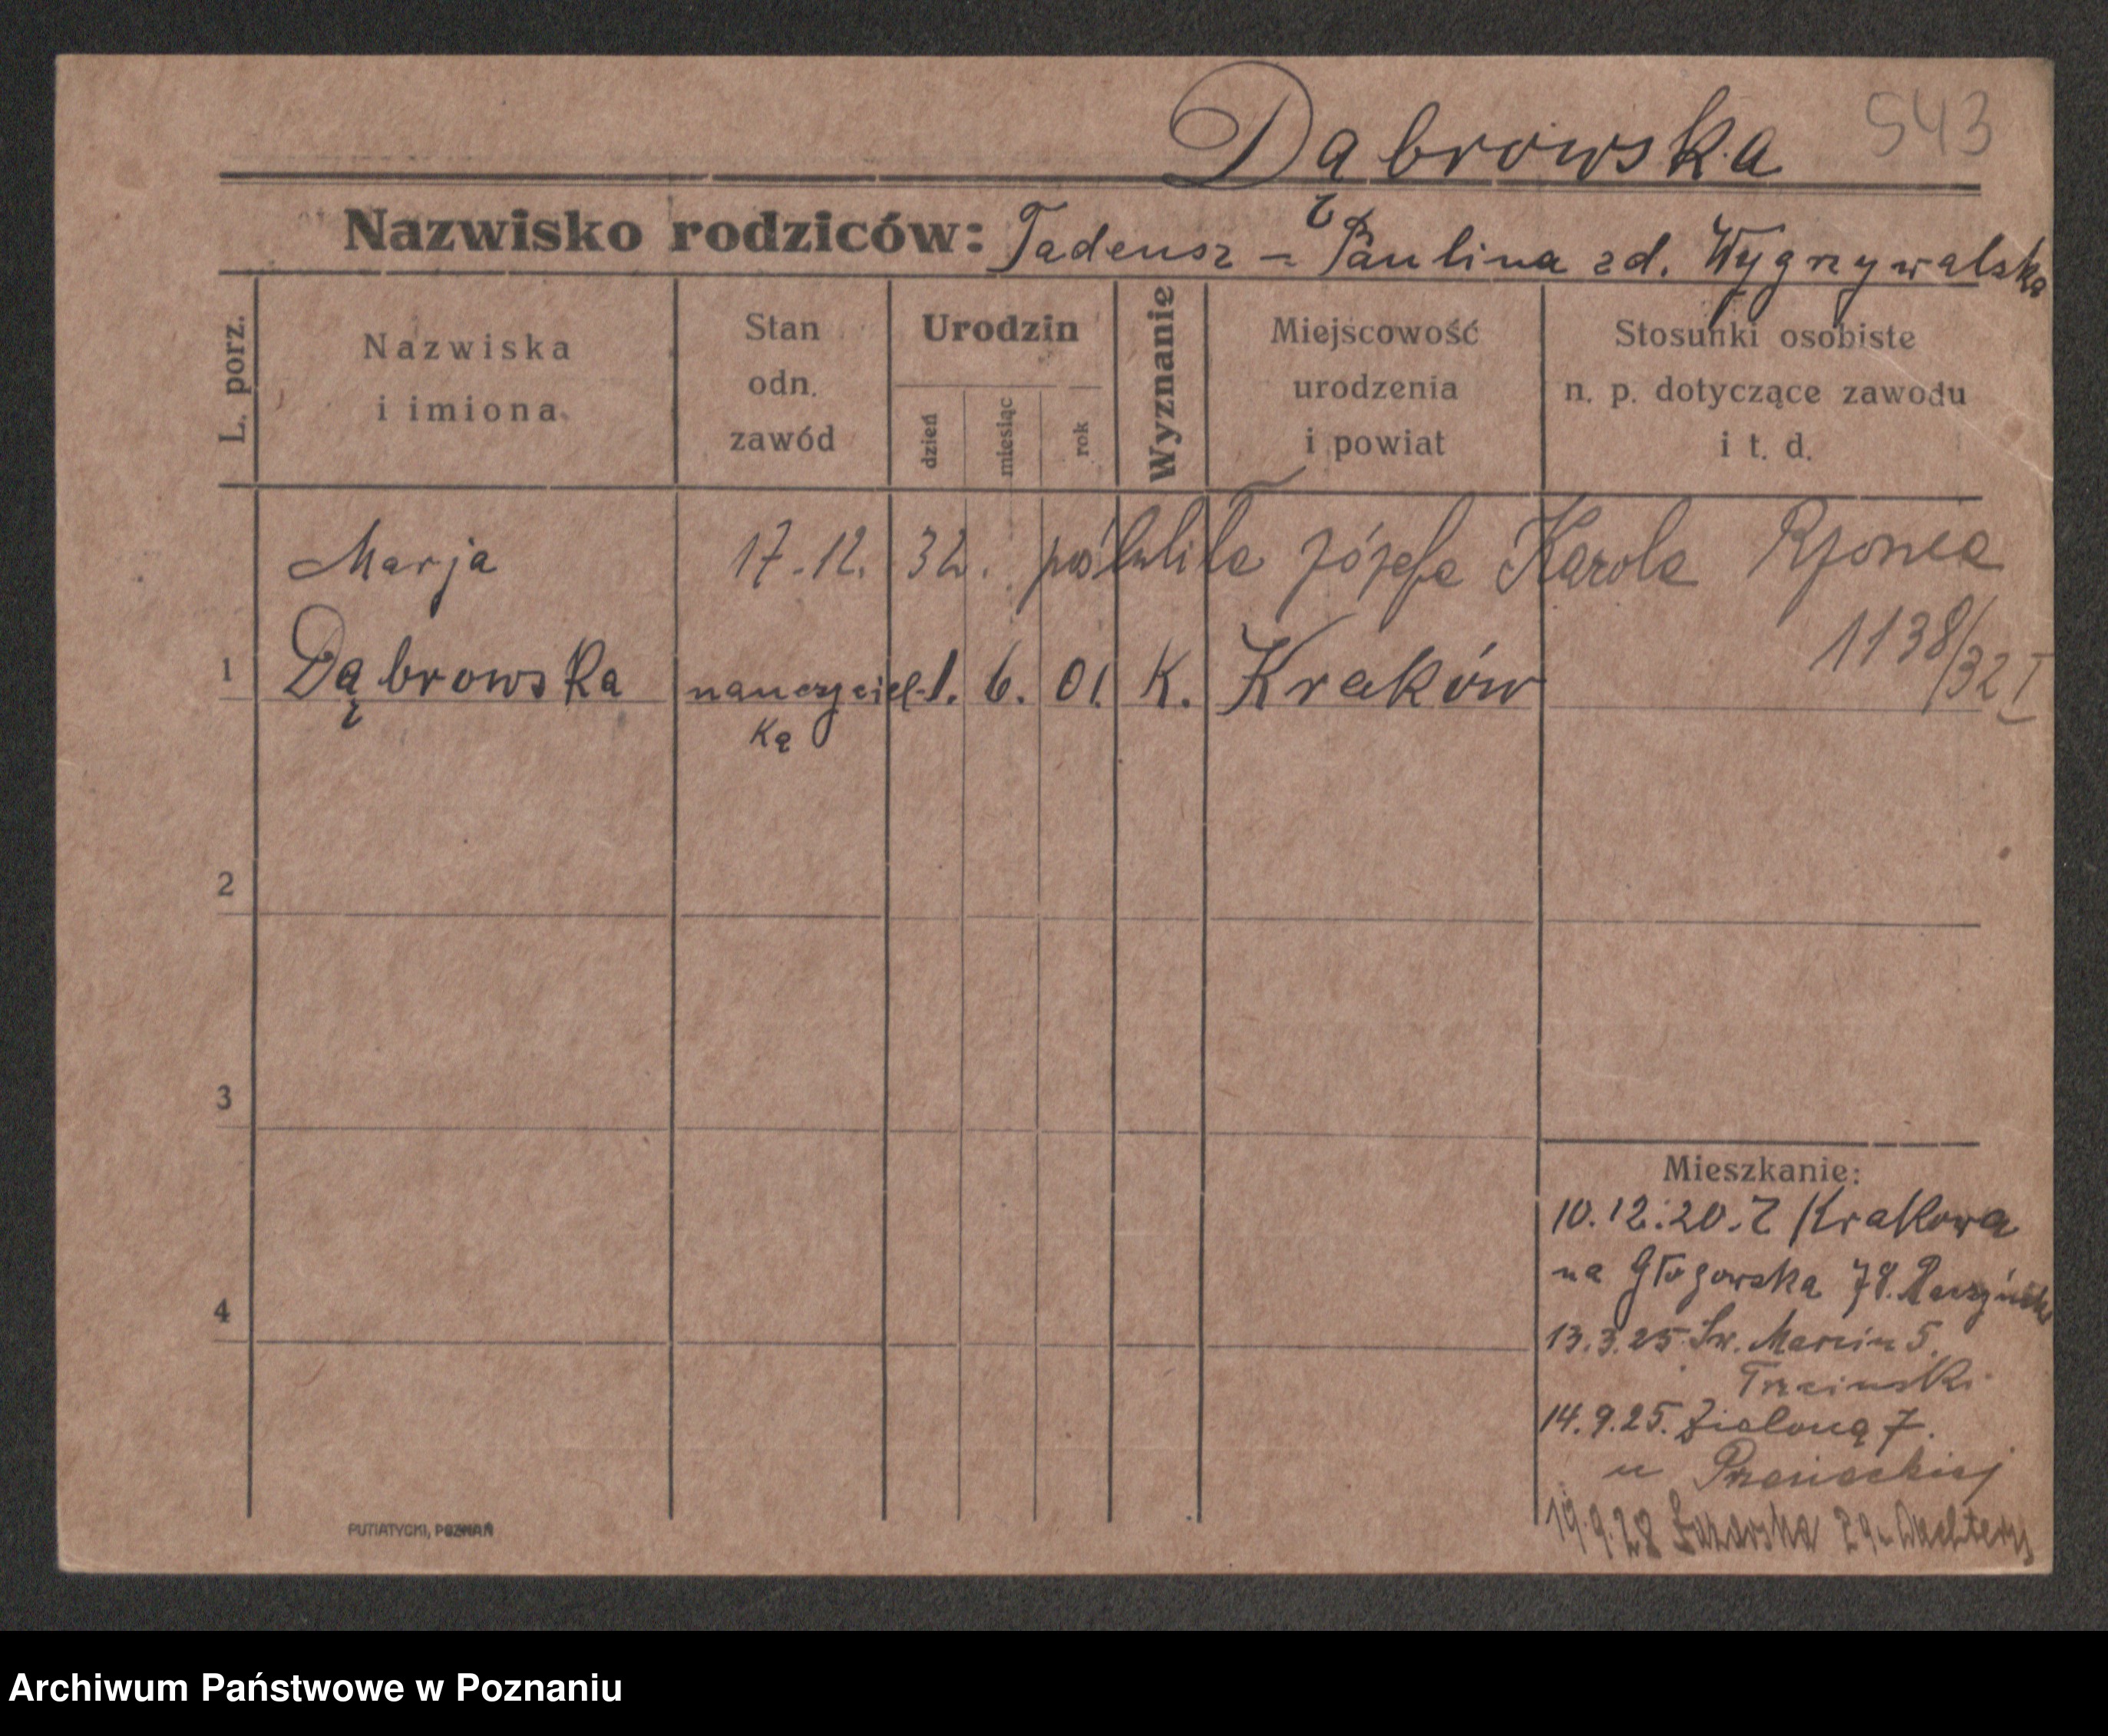 Dąbrowska 543
Nazwisko rodziców: Tadeusz - Paulina zd. Wygrzywalska
L. porz.
Nazwiska
i imiona
Stan
odn.
zawód
Urodzin
dzień
miesiąc
rok
Wyznanie
Miejscowość
urodzenia
i powiat
Stosunki osobiste
n. p. dotyczące zawodu
i t. d.
Marja 17.12. 32. poślubiła Józefa Karola
1138/32 I
1 Dąbrowska nauczyciel- 1. 6. 01. K. Kraków
ką
2
3
4
Mieszkanie:
10.12.20. Z Krakowa
na Głogowska 78.
13.3.25 Św. Marcin 5.
Trzcinski
14.9.25. Zieloną 7.
u
19.9.28 Łazarska
PUTIATYCKI, POZNAŃ
Archiwum Państwowe w Poznaniu